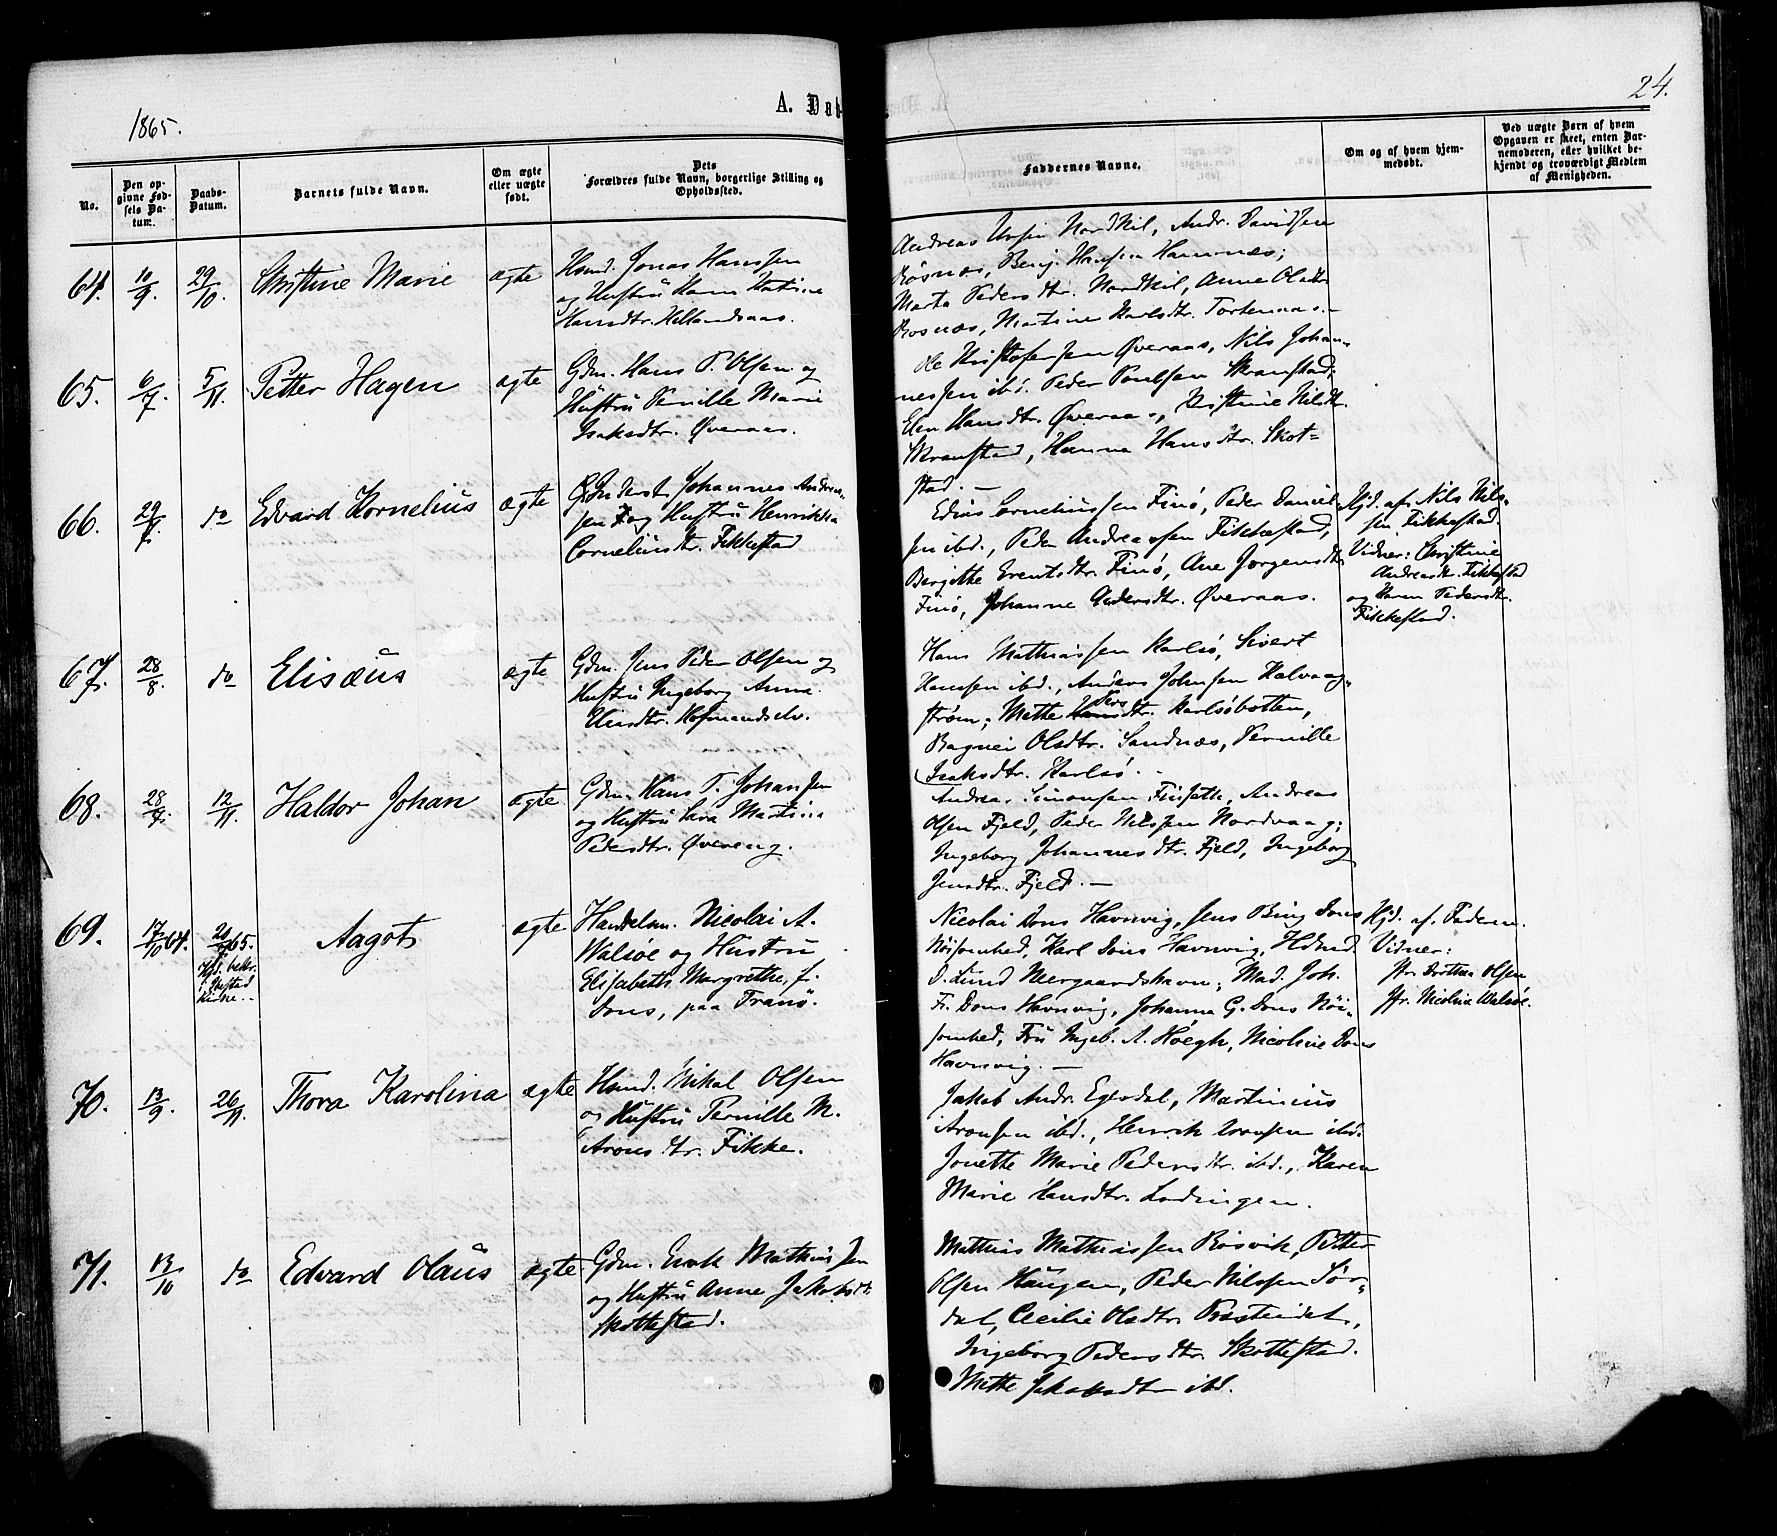 1865.
A. Døb
24.
No.
Den op-
givne Fød-
sels Da-
tum.
Daabs-
Datum.
Barnets fulde Navn.
Om ægte
eller uægte
født.
Dets
Forældres fulde Navn, borgerlige Stilling og
Opholdssted.
Faddernes Navne.
Om og af hvem hjem-
medøbt.
Ved uægte Børn af hvem
Opgaven er skeet, enten Bar-
nemoderen, eller hvilket be-
kjendt og troværdigt Medlem
af Menigheden.
64. 10/9. 29/10. Christine Marie ægte
Hsmd. Jonas Hanssen
og Hustru Karen Katrine
Hansdtr. Hellandsaas.
Andreas Ursin Nordkil, Andr. Davidsen
Rösnæs, Benj. Hansen Hamnæs;
Marta Pedersdtr. Nordkil, Anne Olsdtr.
Rosnæs, Martine Karlsdtr. Tortenaas.
65. 6/7. 5/11. Petter Hagen ægte
Gdm. Hans P. Olsen og
Hustru Pernille Marie
Isaksdtr. Øveraas.
Ole Kristofersen Øveraas, Nils Johan-
nessen ibd. Peder Poulsen Skranstad;
Elen Hansdtr. Øveraas, Kristine Nilsdtr.
Skranstad, Hanna Hansdtr. Skot=
stad. —
66. 29/7. do Edvard Kornelius ægte
Johannes Andrea-
sen og Hustru Henrikka
Corneliusdtr. Fikkestad
Edias Corneliussen Finö, Peder Daniel-
sen ibd., Peder Andreassen Fikkestad,
Bergitte Erentsdtr. Finö, Ane Jørgensdtr.
Finö, Johanne Andersdtr. Øveraas.
Hjd. af Nils Nils-
sen Fikkestad.
Vidner: Christine
Andreasdtr. Fikkestad
og Karen Pedersdtr.
Fikkestad.
67. 28/8. do Elisæus ægte
Gdm. Jens Peder Olsen og
Hustru Ingeborg Anna
Hofmandselv.
Hans Mathiassen Karlsö, Sivert
Hanssen ibd., Anders Johnsen Kalvaag-
strøm; Mette dtr. Karlsöbotten,
Ragnei Olsdtr. Sandnæs, Pernille
Isaksdtr. Karlsö.
68. 28/9. 12/11. Haldor Johan ægte
Gdm. Hans T. Johansen
og Hustru Sara Martina
Pedersdtr. Øvereng.
Andreas Simonsen Finsæth, Andreas
Olsen Fjeld, Peder Nilssen Nordvaag;
Ingeborg Johannesdtr. Fjeld, Ingeborg
Jensdtr. Fjeld. —
69. 17/10 64. 65. Aagot ægte
Hjd. bekr.
Kirke.
Handelsm. Nicolai A.
Walsöe og Hustru
Elisabeth Margrethe, f.
Dons, paa Tranö.
Nicolai Dons Havnvig, Jens Bing Dons
Nöisomhed, Karl Dons Havnvig, Hdmd.
D. Lund Neergaardshavn; Mad. Joh.
Fr. Dons Havnvig, Johanna G. Dons Nöi-
somhed, Fru Ingeb. A. Höegh, Nicoline Dons
Havnvig. —
Hjd. af Faderen.
Vidner:
Jfr. Dorthea Olsen
Jfr. Nicoline Walsöe.
70. 13/9. 26/11. Thora Karolina ægte
Hsmd. Mikal Olsen
og Hustru Pernille M.
Aronsdtr. Fikke.
Jakob Andr. Egesdal, Martinius
Aronsen ibd., Henrik Aronsen ibd.
Jonette Marie Pedersdtr. ibd., Karen
Marie Hansdtr. Lødingen.
71. 13/10 do Edvard Olaüs ægte
Gdm. Enok Mathiassen
og Hustru Anne Jakobsdtr.
Skottestad.
Mathias Mathiassen Rösvik, Petter
Olsen Haugen, Peder Nilssen Sör-
dal, Cecilie Olsdtr. Præsteidet,
Ingeborg Pedersdtr. Skottestad.
Mette Jakobsdtr ibd.